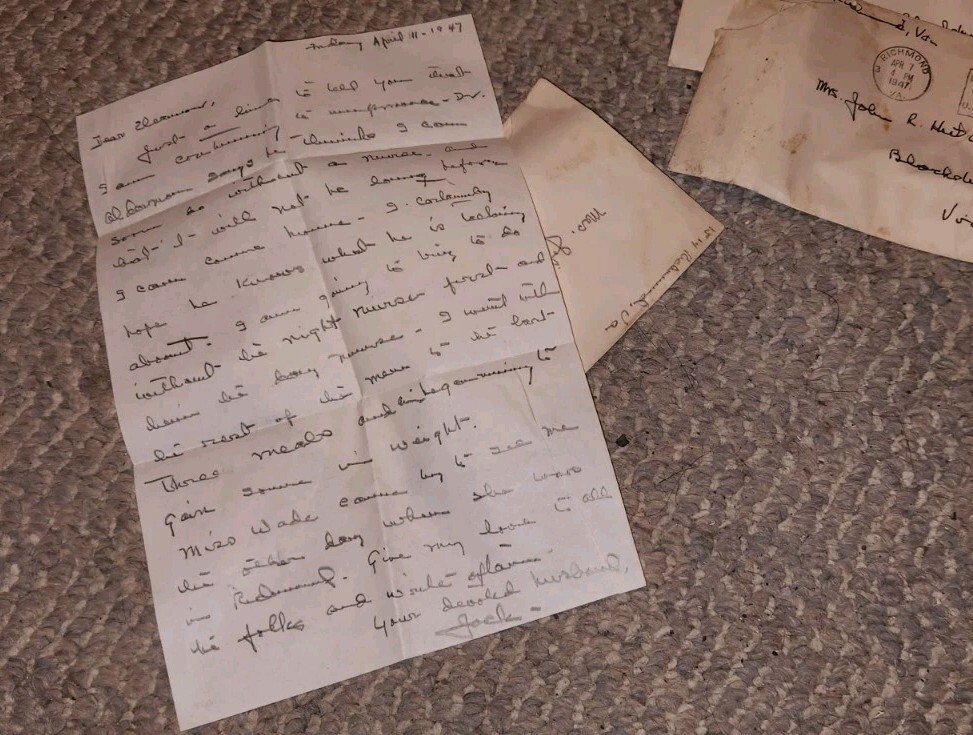 Friday April 11-1947
Dear Eleanor,
Just a line to let you that
I am continuing to improve - Dr.
says he thinks I can
soon do without a nurse - and
that I will not be long before
I can come home - I certainly
hope he knows what he is talking
about. I am going to try to do
without the night nurse first and
then the day nurse - I want
the rest of the to the last
Three meals and am beginning to
gain some in weight.
Miss Wade came by to see me
the other day when she was
in Richmond - Give my love to all
the folks and write often
Your devoted husband,
Jack -
Mrs.
Va.
Va.
RICHMOND
APR 7
4 PM
1947
VA.
Mrs. John R.